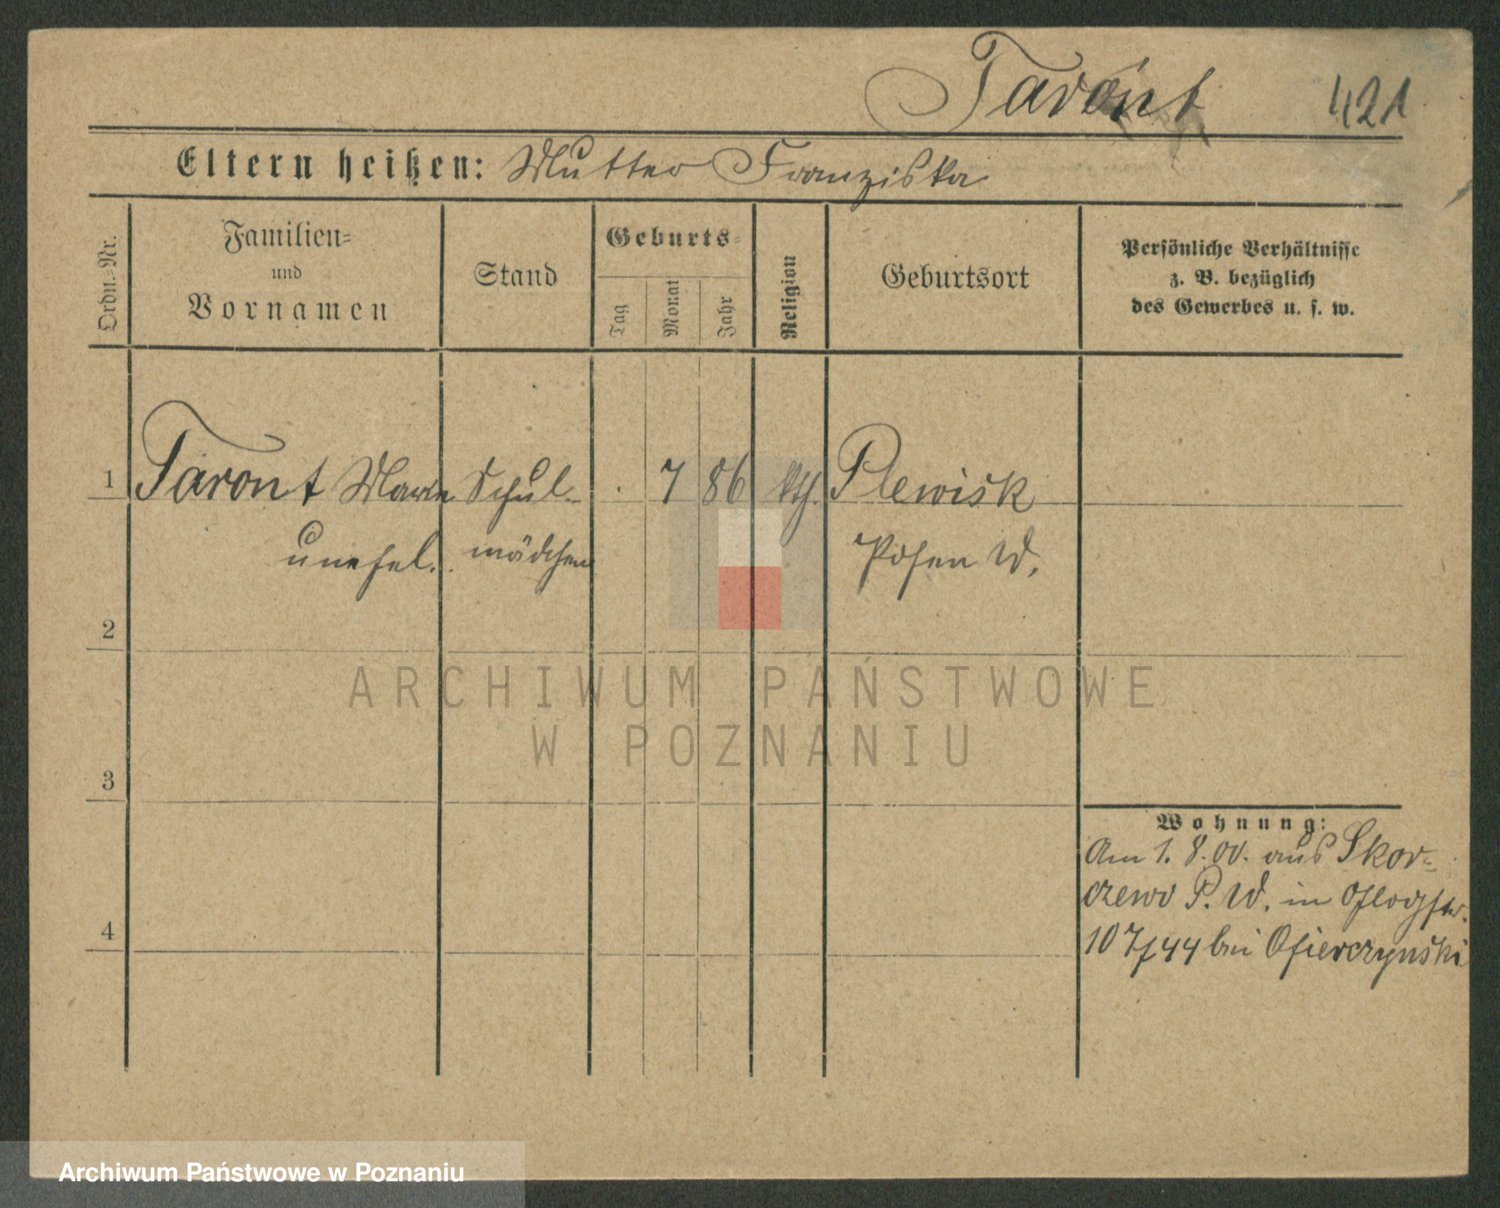 Taront 421
Eltern heißen: Mutter Franziska
Ordn.-Nr.
Familien-
und
Vornamen
Stand
Geburts-
Tag
Monat
Jahr
Religion
Geburtsort
Persönliche Verhältnisse
z. B. bezüglich
des Gewerbes u. s. w.
1 Taront Marie Schul- . 7 86 kth. Plewisk
unehel. mädchen Posen W.
2
3
4
Wohnung:
Am 1. 8. 00. aus Skor-
czewo P. W. in
10 7/44 bei Ofierczynski
ARCHIWUM PAŃSTWOWE
W POZNANIU
Archiwum Państwowe w Poznaniu